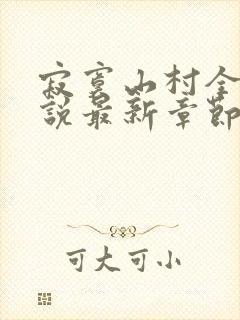 寂寞山村全
說最新章節
可大可小